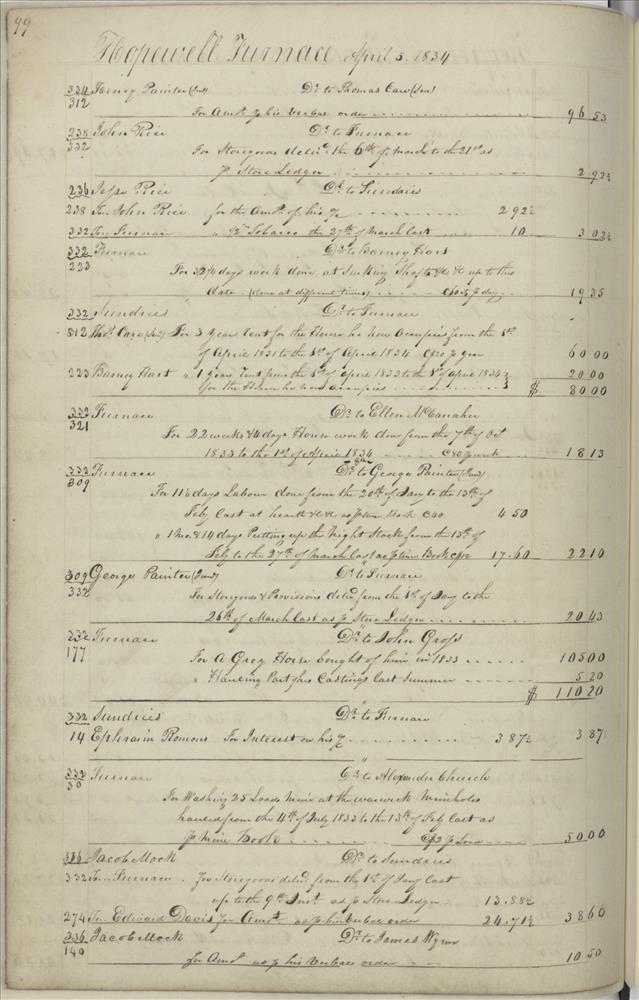 99
Hopewell Furnace April 5 1834
334 Henry Painter (Jun) Dr to Thomas Care (Jun)
312
For Amt p his verbal order 96 53
238 John Rice Dr to Furnace
332
For Storegoods delivd the 6th of March to the 21st as
p Store Ledger 2 92½
236 Jesse Rice Dr to Sundries
238 To John Rice for the Amt of his % 2 92½
332 To Furnace " ½ lb Tobacco the 27th of March last 10 3 02½
332 Furnace Dr to Barney Hart
223
For 32¼ days work done at Sinking Shafts &c &c up to this
date (done at different times) p day 19 35
332 Sundries Dr to Furnace
312 Thos Care (Jun) For 3 years rent for the House he now Occupies from the 1st
of April 1831 to the 1st of April 1834 @ $20 p year 60 00
223 Barney Hart " 1 years rent from the 1st of April 1833 to the 1st of April 1834 20 00
for the House he now occupies $ 80 00
332 Furnace Dr to Ellen McCanaher
321
For 22 weeks & 4 days House work done from the 7th of Oct
1833 to the 1st of April 1834 @ 80 p week 18 13
332 Furnace Dr to George Painter (Jun)
309
For 11¼ days Labour done from the 20th of Jany to the 13th of
Feby last at hearth &c &c as p time Book @ 40 4 50
" 1 Mo. & 14 days Putting up the Night Stock from the 13th of
Feby to the 27th of March last as p time Book @ 17.60 22 10
309 George Painter (Jun) Dr to Furnace
332
For Storegoods & Provisions delivd from the 1st of Jany to the
26th of March last as p Store Ledger 20 43
332 Furnace Dr to John Gross
177
For A Grey Horse bought of him in 1833 105 00
" Hauling Part of his Castings last Summer 5 20
$ 110 20
332 Sundries Dr to Furnace
14 Ephraim Romans For Interest on his % 3 87½ 3 87½
332 Furnace Dr to Alexander Church
30
For Washing 25 Loads Mine at the warwick Mineholes
hauled from the 4th of July 1833 to the 13th of Feby last as
p Mine Book @ $2 p Load 50 00
336 Jacob Mock Dr to Sundries
332 To Furnace For Storegoods delivd from the 1st of Jany last
up to the 9th Inst. as p Store Ledger 13.88½
274 To Edward Davis for Amt as p his verbal order 24.71½ 38 60
336 Jacob Mock Dr to James Wynn
140
for Amt as p his verbal order 10 50